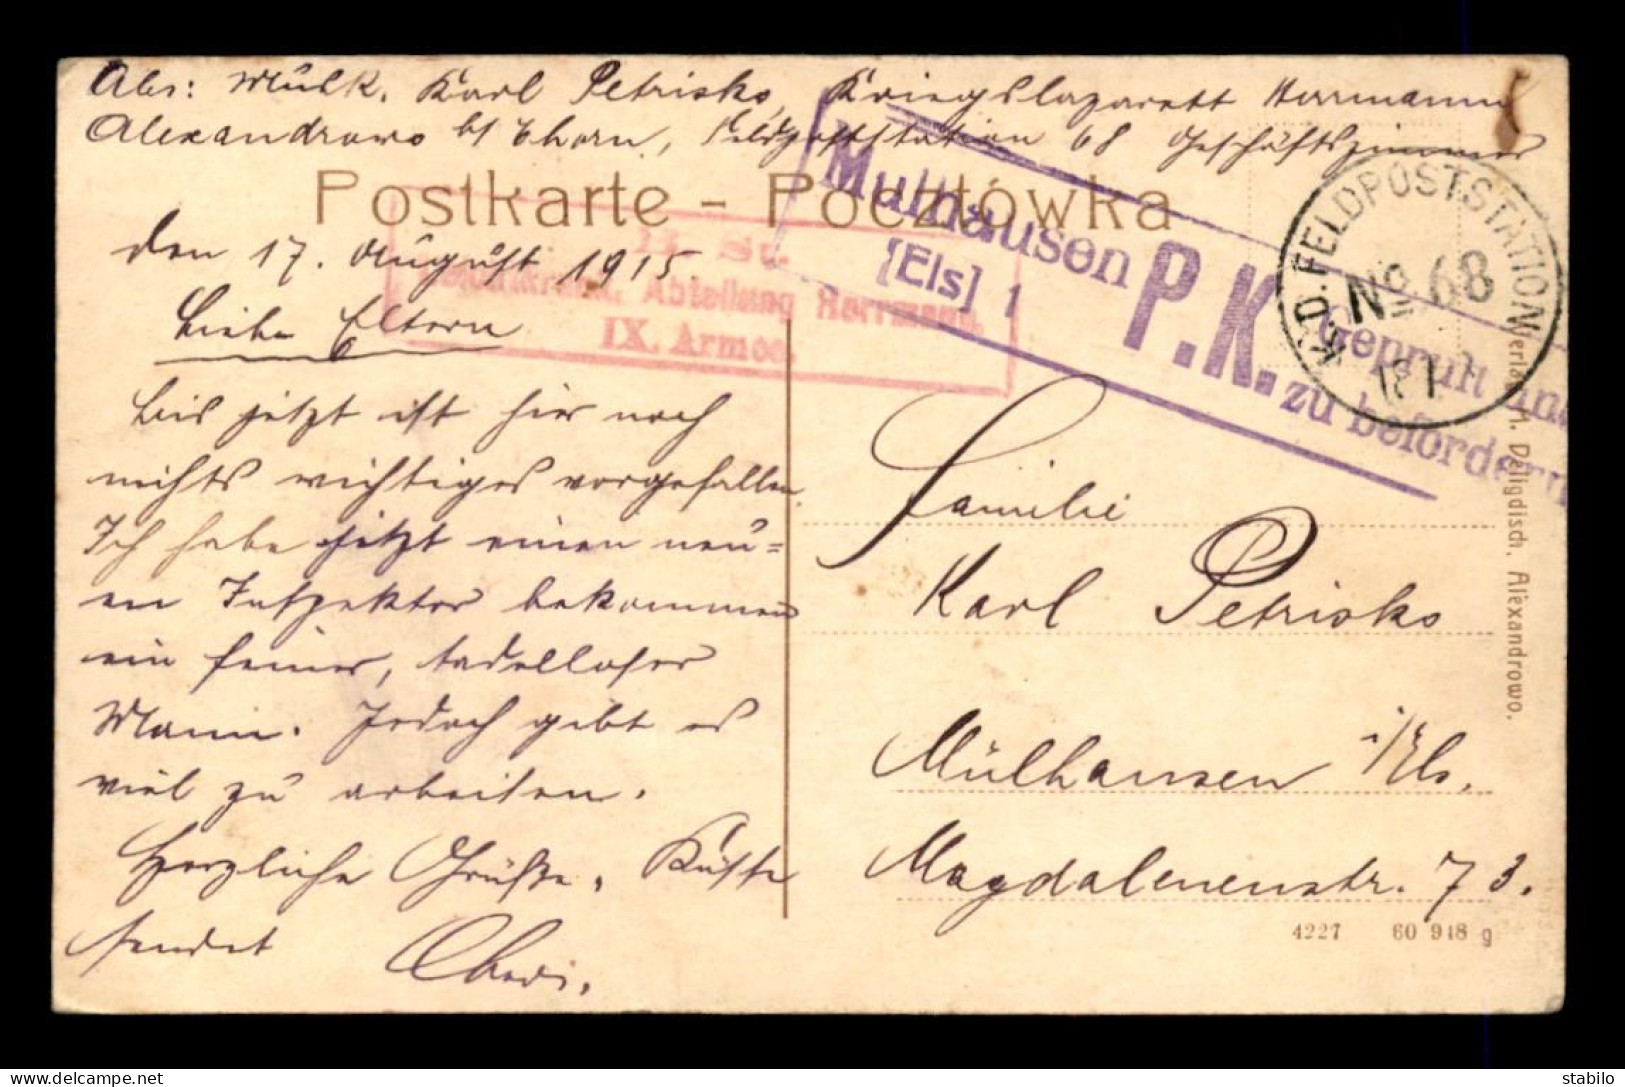 Abs: Musk. Karl Petrisko, Kriegslazarett Herrmann
Alexandrowo b/ Thorn, Feldpoststation 68 Geschäftszimmer
Postkarte - Pocztówka
den 17. August 1915.
Liebe Eltern
Bis jetzt ist hier noch
nichts wichtiges vorgefallen.
Ich habe jetzt einen neu=
en Inspektor bekommen
ein feiner, tadelloser
Mann. Jedoch gibt es
viel zu arbeiten.
Herzliche Grüße, Küsse
sendet
Abteilung Herrmann.
IX. Armee.
Mülhausen
[Els] 1
P.K.
Geprüft und
zu befördern
K.D. FELDPOSTSTATION
No 68
Familie
Karl Petrisko
Mülhausen i/Els.
Magdalenenstr. 73.
4227 60 918 g
Verlag M. Deligdisch, Alexandrowo.
stabilo
www.delcampe.net